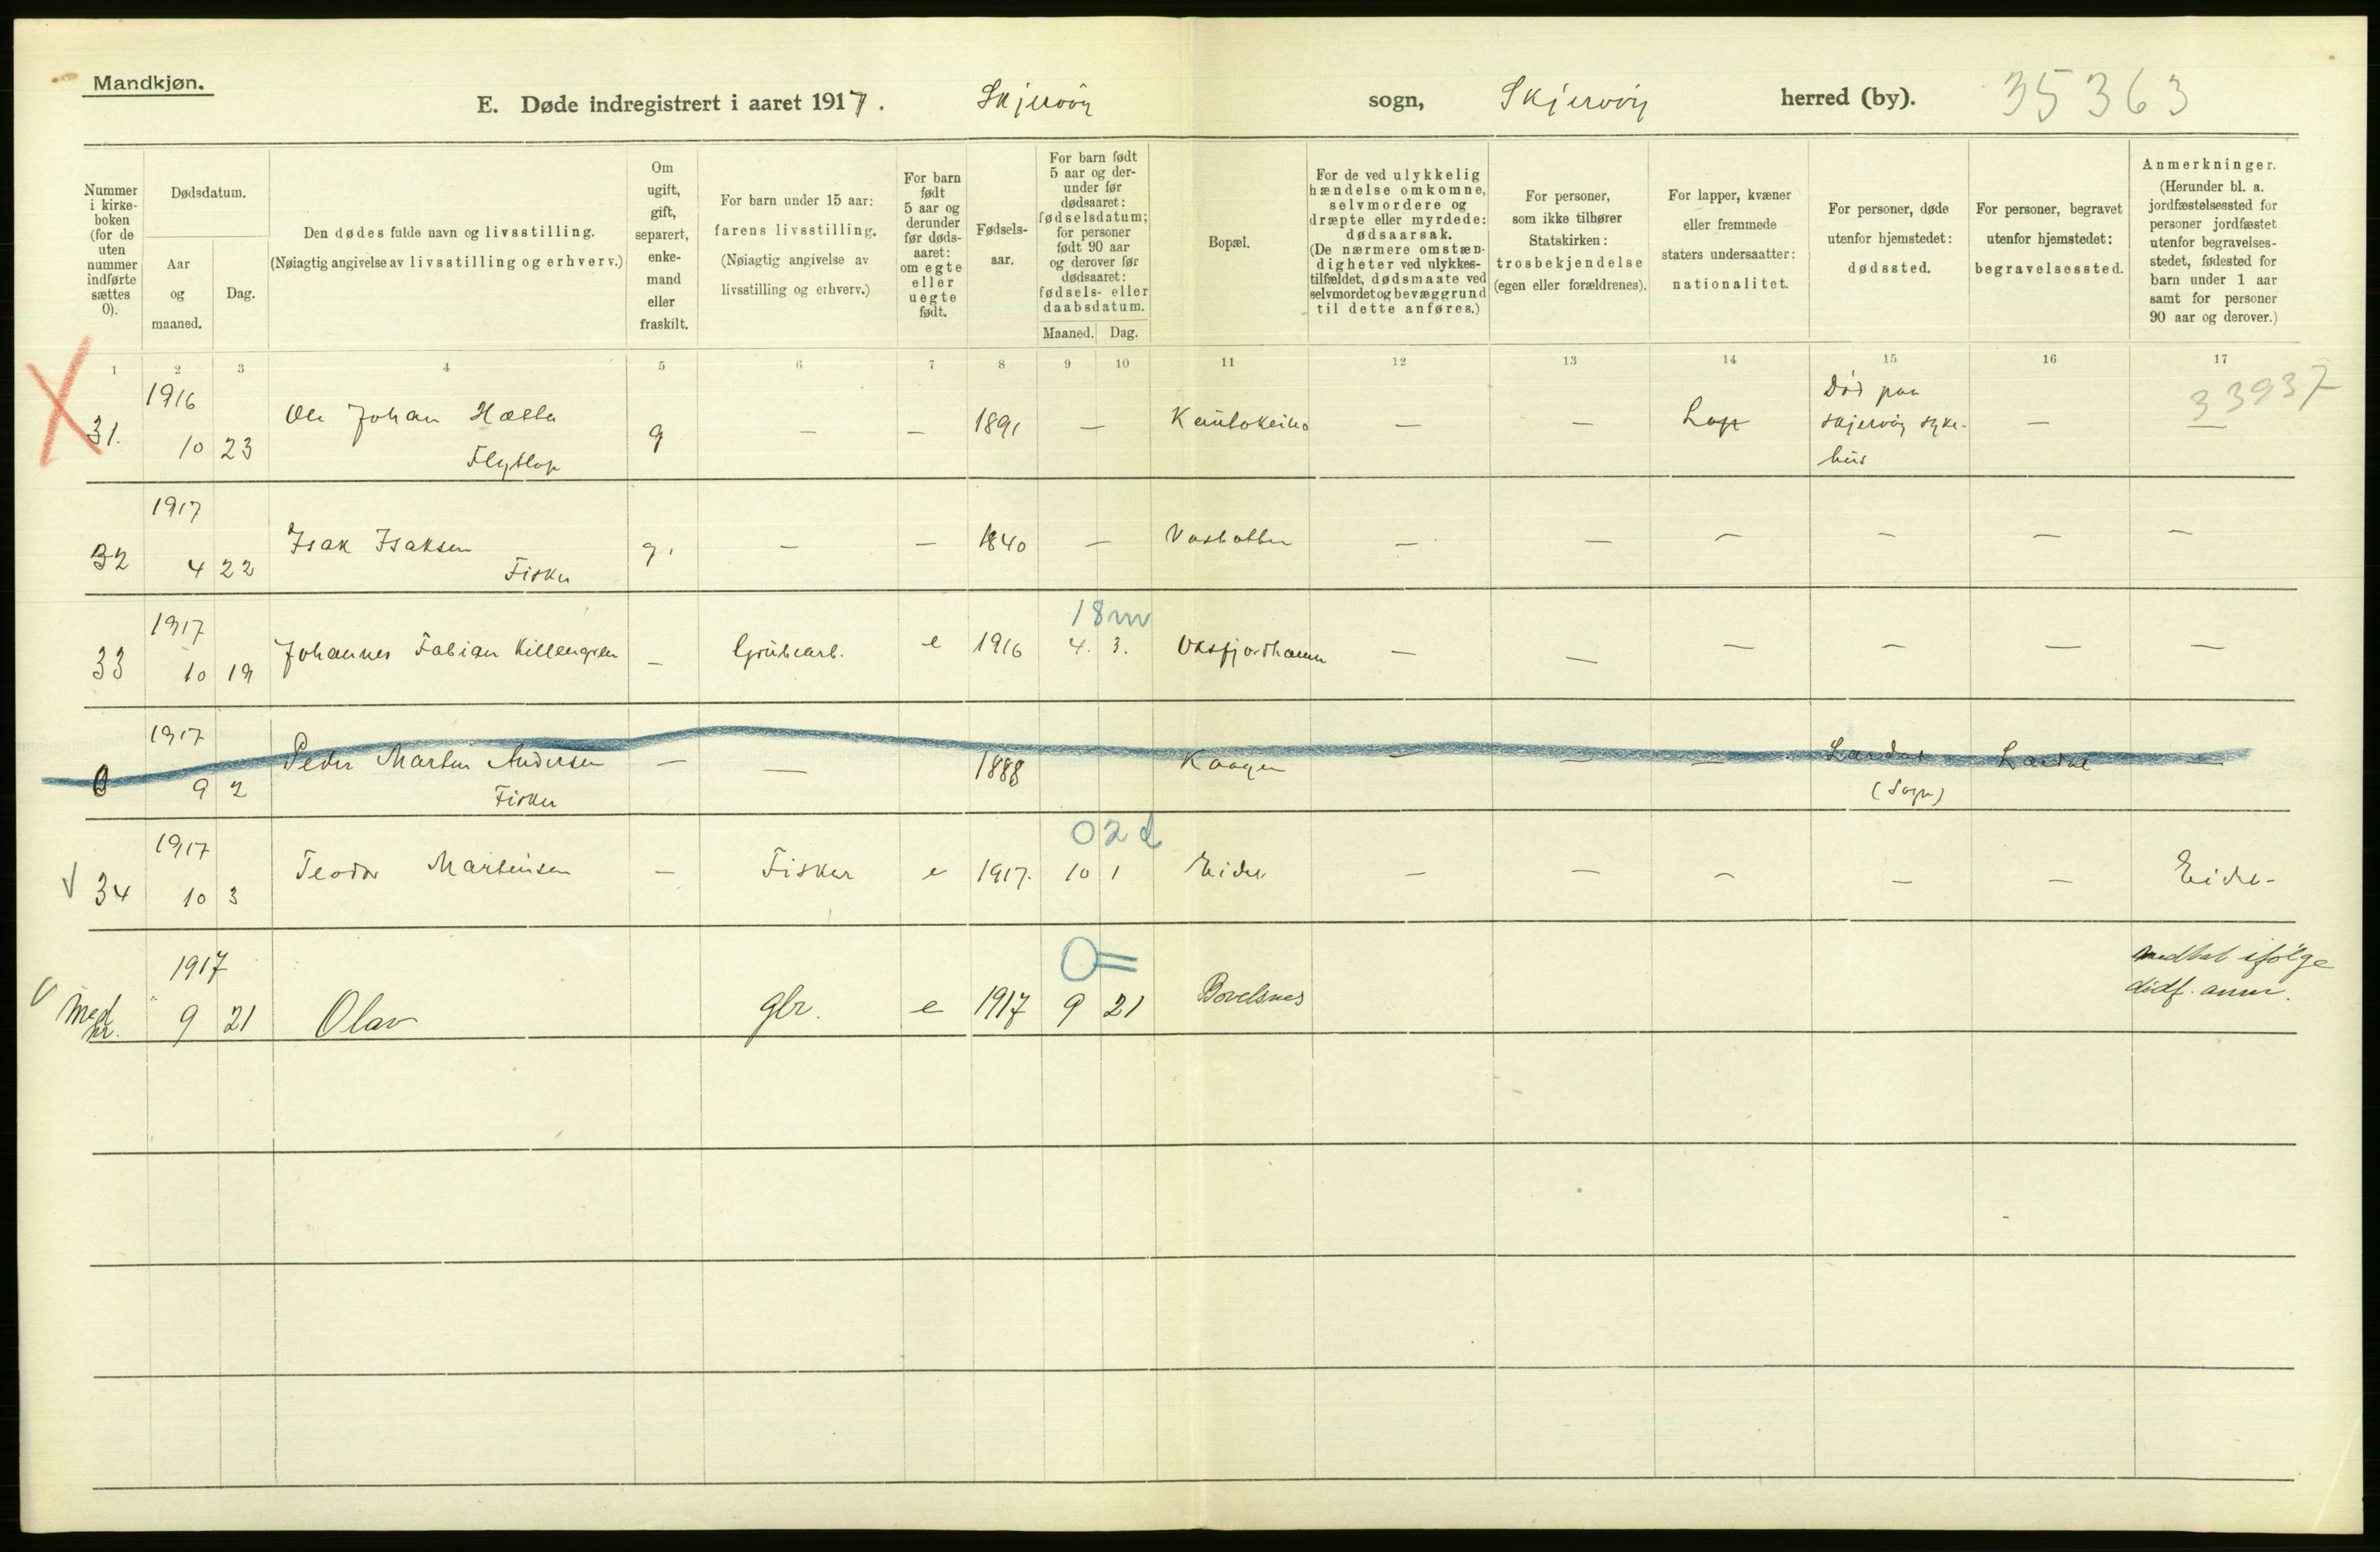 Mandkjøn.
E. Døde indregistrert i aaret 1917. Skjervöy sogn, Skjervöy herred (by). 35363
Nummer i kirkeboken (for de uten nummer indførte sættes 0).
Dødsdatum.
Aar og maaned.
Dag.
Den dødes fulde navn og livsstilling.
(Nøiagtig angivelse av livsstilling og erhverv.)
Om ugift, gift, separert, enkemand eller fraskilt.
For barn under 15 aar: farens livsstilling.
(Nøiagtig angivelse av livsstilling og erhverv.)
For barn født 5 aar og derunder før dødsaaret: om egte eller uegte født.
Fødselsaar.
For barn født 5 aar og derunder før dødsaaret: fødselsdatum; for personer født 90 aar og derover før dødsaaret: fødsels- eller daabsdatum.
Maaned. Dag.
Bopæl.
For de ved ulykkelig hændelse omkomne, selvmordere og dræpte eller myrdede: dødsaarsak.
(De nærmere omstændigheter ved ulykkestilfældet, dødsmaate ved selvmordet og bevæggrund til dette anføres.)
For personer, som ikke tilhører Statskirken: trosbekjendelse (egen eller forældrenes).
For lapper, kvæner eller fremmede staters undersaatter: nationalitet.
For personer, døde utenfor hjemstedet: dødssted.
For personer, begravet utenfor hjemstedet: begravelsessted.
Anmerkninger.
(Herunder bl. a. jordfæstelsessted for personer jordfæstet utenfor begravelsesstedet, fødested for barn under 1 aar samt for personer 90 aar og derover.)
1 2 3 4 5 6 7 8 9 10 11 12 13 14 15 16 17
31. 1916 10 23 Ole Johan Hætta Flytlap g — — 1891 — Kautokeino — — Lap Död paa Skjervöy sykehus — — 33937
32 1917 4 22 Isak Isaksen Fisker g. — — 1840 — — — — — — —
33 1917 10 19 Johannes Fabian Killengren — Grubearb. e 1916 4. 3. 18m Oksfjordhavn — — — — — —
0 1917 9 2 Peder Martin Andersen Fisker — — 1888 Kaagen — — — Lærdal (Sogn) Lærdal —
34 1917 10 3 Teodor Martinsen — Fisker e 1917. 10 1 02d Eide — — — — — Eide-
Med nr. 1917 9 21 Olav gbr. e 1917 9 21 0 = Bovelsnes medtat ifölge dödf. anm.